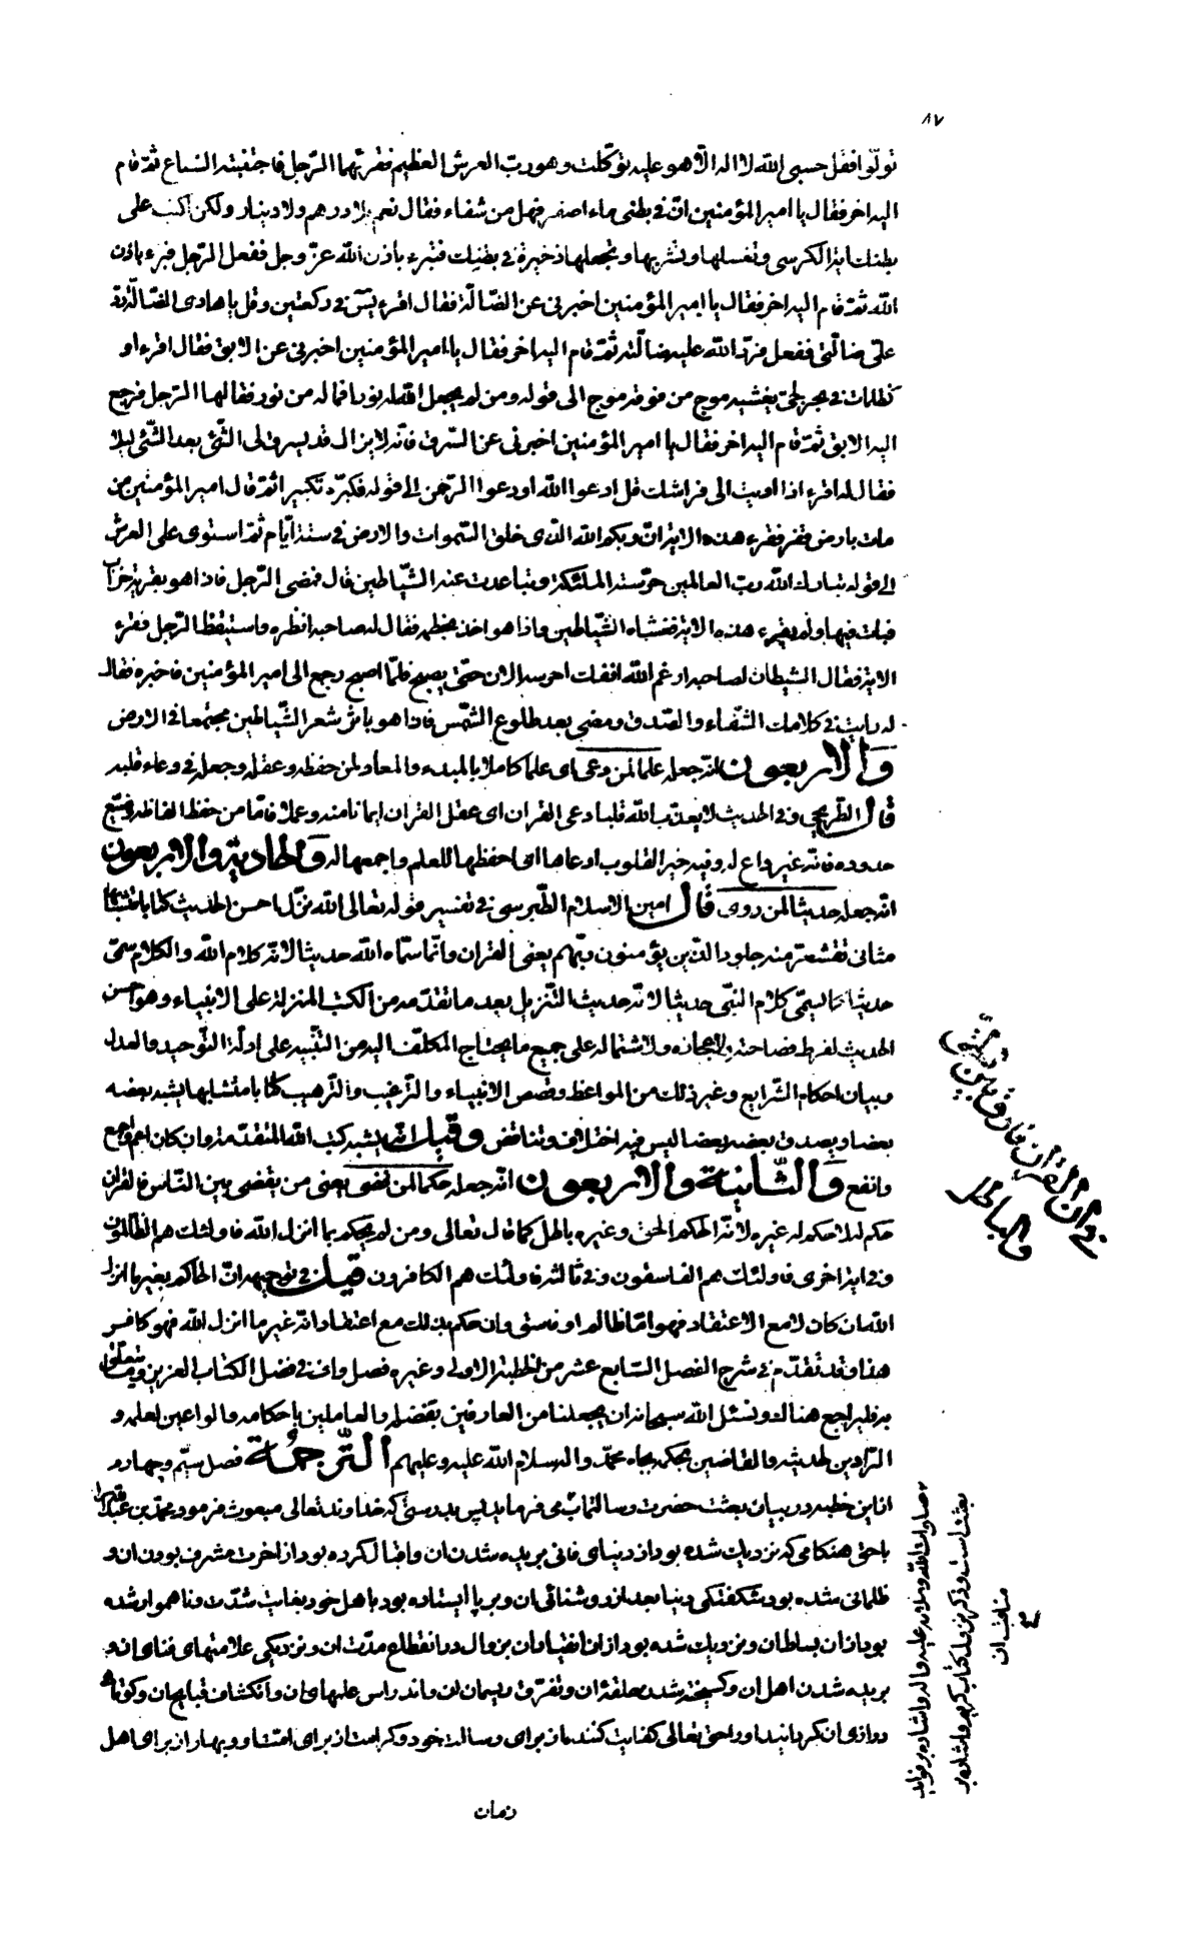 ٨٧
تولّوا فقل حسبى الله لا اله الّا هو عليه توكّلت وهو ربّ العرش العظيم فقرئهما الرّجل فاجتنبته السّباع ثمّ قام
اليه اخر فقال يا امير المؤمنين انّ فى بطنى ماء اصفر فهل من شفاء فقال نعم بلا درهم ولا دينار ولكن اكتب على
بطنك اية الكرسى وتغسلها وتشربها وتجعلها ذخيرة فى بطنك فتبرء باذن الله عزّ وجل ففعل الرّجل فبرء باذن
الله ثمّ قام اليه اخر فقال يا امير المؤمنين اخبرنى عن الضّالّة فقال اقرء يٓس فى ركعتين وقل يا هادى الضّالّة ردّ
علىّ ضالّتى ففعل فردّ الله عليه ضالّته ثمّ قام اليه اخر فقال يا امير المؤمنين اخبرنى عن الابق فقال اقرء او
كظلمات فى بحر لجىّ يغشيه موج من فوقه موج الى قوله ومن لم يجعل الله له نورا فما له من نور فقالها الرّجل فرجع
اليه الابق ثمّ قام اليه اخر فقال يا امير المؤمنين اخبرنى عن السّرق فانّه لا يزال قد يسرق لى الشّئ بعد الشّئ ليلا
فقال له اقرء اذا اويت الى فراشك قل ادعوا الله او ادعوا الرّحمن الى قوله فكبّره تكبيرا ثمّ قال امير المؤمنين من
مات بارض قفر فقرء هذه الاية انّ ربّكم الله الّذى خلق السّموات والارض فى ستّة ايّام ثمّ استوى على العرش
الى قوله تبارك الله ربّ العالمين حرسته الملئكة وتباعدت عنه الشّياطين قال فمضى الرّجل فاذا هو بقرية خراب
فبات فيها ولم يقرء هذه الاية فغشاه الشّياطين واذا هو اخذ بخطمه فقال له صاحبه انظره واستيقظ الرّجل فقرء
الاية فقال الشيطان لصاحبه ارغم الله انفك احرسه الان حتّى يصبح فلمّا اصبح رجع الى امير المؤمنين فاخبره فقال
له رايت فى كلامك الشّفاء والصّدق ومضى بعد طلوع الشّمس فاذا هو باثر شعر الشّياطين مجتمعا فى الارض
وَالاربعون انّه جعله علما لمن وعى اى علما كاملا بالمبدء والمعاد لمن حفظه وعقله وجعله فى وعاء قلبه
قال الطّريحى وفى الحديث لا يعذّب الله قلبا وعى القران اى عقل القران ايمانا منه وعملا فامّا من حفظ الفاظه وضيّع
حدوده فانّه غير واع له وفيه خير القلوب اوعاها اى احفظها للعلم واجمعها له وَالحادية والاربعون
انّه جعله حديثا لمن روى قال امين الاسلام الطّبرسى فى تفسير قوله تعالى الله نزّل احسن الحديث كتابا متشابها
مثانى تقشعرّ منه جلود الّذين يؤمنون بربّهم يعنى القران وانّما سمّاه الله حديثا لانّه كلام الله والكلام سمّى
حديثا كما يسمّى كلام النّبى حديثا لانّه حديث التّنزيل بعد ما تقدّمه من الكتب المنزلة على الانبياء وهو احسن
الحديث لفرط فصاحته ولاعجازه ولاشتماله على جميع ما يحتاج المكلّف اليه من التّنبيه على ادلّة التّوحيد والعدل
وبيان احكام الشّرايع وغير ذلك من المواعظ وقصص الانبياء والتّرغيب والتّرهيب كتابا متشابها يشبه بعضه
بعضا ويصدق بعضه بعضا ليس فيه اختلاف وتناقض وقيل انّه يشبه كتب الله المتقدّمة وان كان اعمّ واجمع
وانفع وَالثّانية والاربعون انّه جعله حكما لمن قضى يعنى من يقضى بين النّاس فالقران
حكم له لا حكم له غيره لانّه الحكم الحق وغيره باطل كما قال تعالى ومن لم يحكم بما انزل الله فاولئك هم الظّالمون
وفى اية اخرى فاولئك هم الفاسقون وفى ثالثة فاولئك هم الكافرون قيل فى توجيهه انّ الحاكم بغير ما انزل
الله ان كان لا مع الاعتقاد فهو امّا ظالم او فاسق وان حكم بذلك مع اعتقاد انّه غير ما انزل الله فهو كافر
هذا وقد تقدّم فى شرح الفصل السّابع عشر من الخطبة الاولى وغيره فصل واف فى فضل الكتاب العزيز وما يتعلّق
به فليراجع هنالك ونسئل الله سبحانه ان يجعلنا من العارفين بفضله والعاملين باحكامه والواعين لعلمه و
الرّاوين لحديثه والقاضين بحكمه بجاه محمّد واله سلام الله عليه وعليهم التّرجمة فصل سيّم وچهارم
از اين خطبه در بيان بعثت حضرت رسالتماب مى فرمايد پس بدرستى كه خداوند تعالى مبعوث فرمود محمّد بن عبد الله را
باحق هنكامى كه نزديك شده بود از دنياى فانى بريده شدن ان واقبال كرده بود از اخرت مشرف بودن ان و
ظلمانى شده بود شكفتكى دنيا بعد از روشنائى ان و بر پا ايستاده بود باهل خود بغايت شدّت و ناهموار شده
بود از ان بساط ان و نزديك شده بود از ان انقياد ان بزوال در انقطاع مدّت ان و نزديكى علامتهاى فناى ان و
بريده شدن اهل ان و كسيخته شدن حلقه ان و تفرّق ريسمان ان و اندراس علمهاى ان و انكشاف قبايح ان و كوتاهى
درازى ان كردانيد او را حق تعالى كفايت كننده از براى رسالت خود و كرامت از براى امّت او و بهار از براى اهل
زمان
فى ان القران فارق بين
والباطل
صلوات الله وسلامه عليه واله واشاره بر فوايد
بعثت است وذكر نزول كتاب كريم واشاره بر
مناقب ان